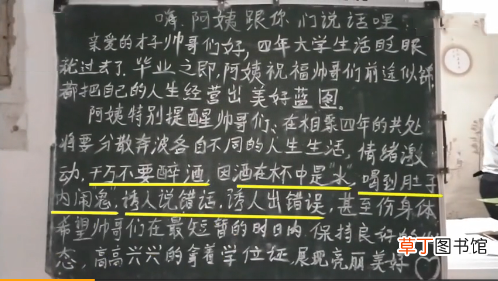 嗨,阿姨跟你们说话哩!
亲爱的才子帅哥们好,四年大学生活眨眼
就过去了.毕业之即,阿姨祝福帅哥们前途似锦
都把自己的人生经营出美好蓝图。
阿姨特别提醒帅哥们、在相聚四年的共处
将要分散奔波各自不同的人生生活,情绪激
动,千万不要醉酒.因酒在杯中是"水,喝到肚子
内闹鬼",诱人说错话,诱人出错误,甚至伤身体
希望帅哥们在最短暂的时日内保持良好的
态,高高兴兴的拿着学位证.展现亮丽美好
草丁图书馆